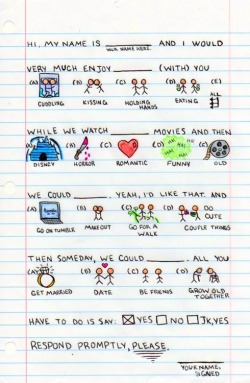 HI, MY NAME IS ________ AND I WOULD
YOUR NAME HERE.
VERY MUCH ENJOY ______ (WITH) YOU
(A) (B) (C) (D) (E)
CUDDLING KISSING HOLDING HANDS EATING ALL
WHILE WE WATCH _____ MOVIES AND THEN
(A) (B) (C) (D) (E)
DISNEY HORROR ROMANTIC FUNNY OLD
WE COULD _____. YEAH, I'D LIKE THAT. AND
(A) (B) (C) (D) DO CUTE
GO ON TUMBLR MAKEOUT GO FOR A WALK COUPLE THINGS
THEN SOMEDAY, WE COULD _____. ALL YOU
(A) (B) (C) (D)
GET MARRIED DATE BE FRIENDS GROW OLD TOGETHER
HAVE TO DO IS SAY: YES NO JK, YES
RESPOND PROMPTLY, PLEASE.
YOUR NAME,
SIGNED